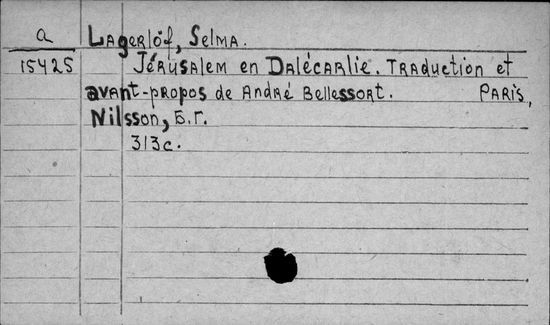 a Lagerlöf, Selma.
15425 Jérusalem en Dalécarlie. Traduction et
avant-propos de André Bellessort. Paris,
Nilsson, Б.Г.
313с.